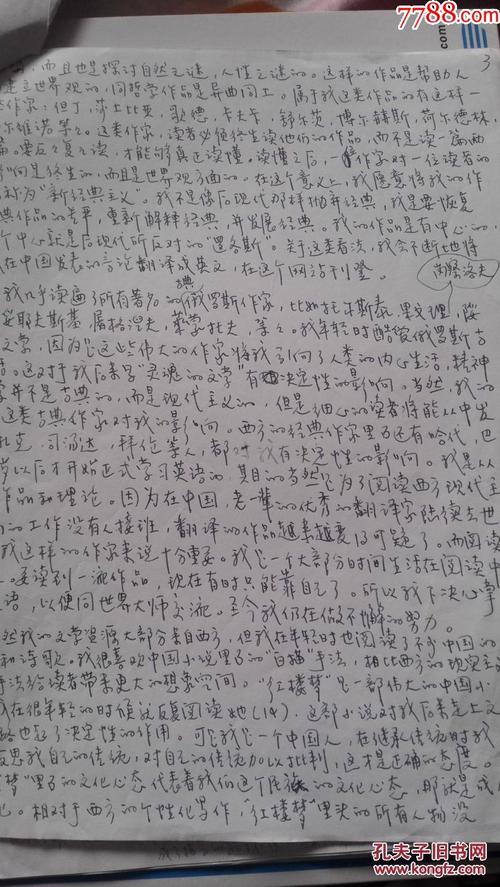 7788.com
com
3
，而且也是探讨自然之谜，人性之谜的。这样的作品是帮助人
建立世界观的，同哲学作品是异曲同工。属于我这类作品的有这样一
些作家：但丁，莎士比亚，歌德，卡夫卡，舒尔茨，博尔赫斯，荷尔德林，
卡尔维诺等等。这类作家，读者必须终生读他们的作品，而不是读一篇两
篇。要反反复复读，才能够真正读懂。读懂之后，一个作家对一位读者的
影响是终生的，而且是世界观方面的。在这个意义上，我愿意将我的作
品称为"新经典主义"。我不是像后现代那样抛弃经典，我是要恢复
经典作品的尊严，重新解释经典，并发展经典。我的作品是有中心的，
个中心就是后现代所反对的"逻各斯"。关于这类看法，我会不断地将
在中国发表的言论翻译成英文，在这个网站刊登。
我几乎读遍了所有著名的古典俄罗斯作家，比如托尔斯泰，果戈理，陀
思妥耶夫斯基，屠格涅夫，莱蒙托夫，等等。我年轻时酷爱俄罗斯古
典文学，因为是这些伟大的作家将我引向了人类的内心生活，精神
生活。这对于我后来写"灵魂的文学"有决定性的影响。当然，我的
文学并不是古典的，而是现代主义的，但是细心的读者将能从中发
这类古典作家对我的影响。西方的经典作家里头还有哈代，巴
扎克，司汤达，拜伦等人，都对我有决定性的影响。我是从
岁以后才开始正式学习英语的，其目的当然是为了阅读西方现代主
作品和理论。因为在中国，老一辈的优秀的翻译家陆续去世
的工作没有人接班，翻译的作品越来越变得可疑了。而阅读
我这样的作家来说十分重要。我是一个大部分时间生活在阅读中
。要读到一流作品，现在有时只能靠自己了。所以我下决心掌
语，以便同世界大师交流。至今我仍在做不懈的努力。
然我的文学资源大部分来自西方，但我在年轻时也阅读了不少中国的
和诗歌。我很喜欢中国小说里头的"白描"手法，相比西方的现实主义
手法给读者带来更大的想象空间。"红楼梦"是一部伟大的中国小
我在很年轻的时候就反复阅读她(14)，这部小说对我后来走上文
路也起了决定性的作用。可是我是一个中国人，在继承传统时我
反思我自己的传统，对自己的传统加以批判，这才是正确的态度。
梦"里头的文化心态代表着我们这个民族的文化心态，那就是
。相对于西方的个性化写作，"红楼梦"里头的所有人物没
7788.com
孔夫子旧书网